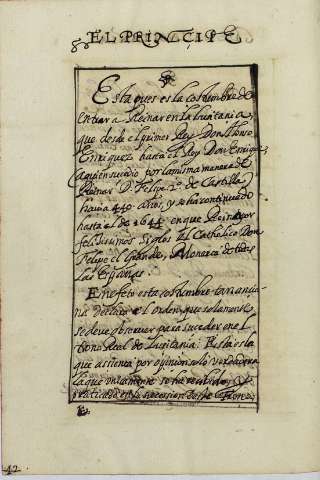 EL PRINCIPE
Esta pues es la costumbre de
entrar a Reinar en la Lusitania,
que desde el primer Rey Don Alonso
Enriquez hasta el Rey Don Enrique,
a quien sucedio por la misma manera de
Reinar D. Felipe 2º de Castilla
havia 440 años, y se ha continuado
hasta el de 1644 en que Reina por
felicissimos siglos El Catholico Don
Felipe el Grande, Monarca de todas
las Españas.
En efeto esta costumbre tan ancia
na declara el orden que solamente
se deve observar para suceder en el
trono Real de Lusitania: Esta es la
que assienta por opinion solo verdadera
la que unicamente se ha recebido, y
praticado en la sucession
42